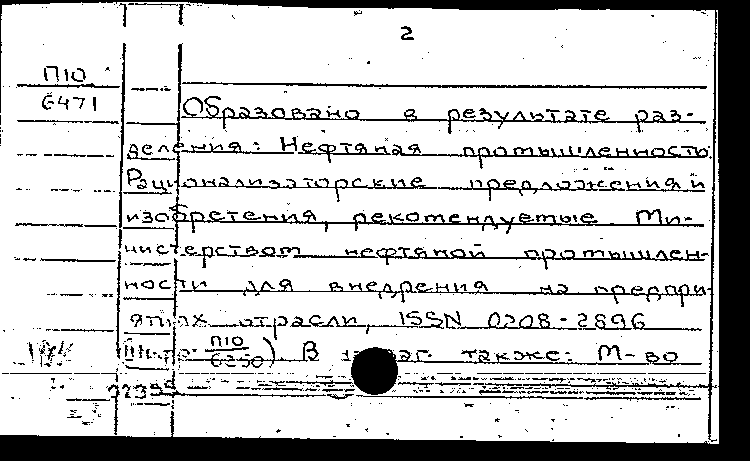 2
П10
6471
Образовано в результате раз-
деления: Нефтяная промышленность
Рационализаторские предложения и
изобретения, рекомендуемые Ми-
нистерством нефтяной промышлен-
ности для внедрения на предпри-
ятиях отрасли, ISSN 0208-2896
П10
6250). В загл. также: М-во